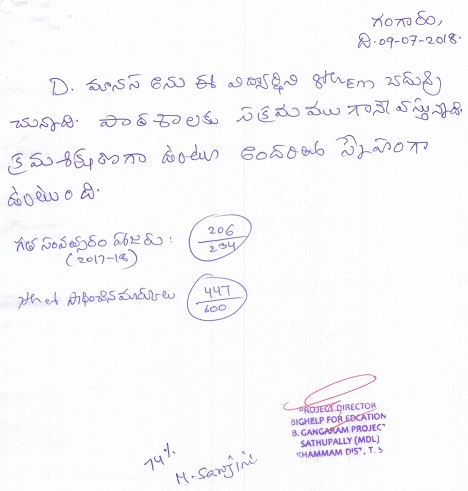 గంగారం,
ది.09-07-2018.
D. మానస అను ఈ విద్యార్థిని 8th EM చదువు
చున్నాది. పాఠశాలకు సక్రమముగానే వస్తున్నాది.
క్రమశిక్షణగా ఉంటూ అందరితో స్నేహంగా
ఉంటుంది.
గత సంవత్సరం హాజరు : 206/234
(2017-18)
7th లో సాధించిన మార్కులు 447/600
PROJECT DIRECTOR
BIGHELP FOR EDCATION
B. GANGARAM PROJECT
SATHUPALLY (MDL)
KHAMMAM DIST, T.S
74%